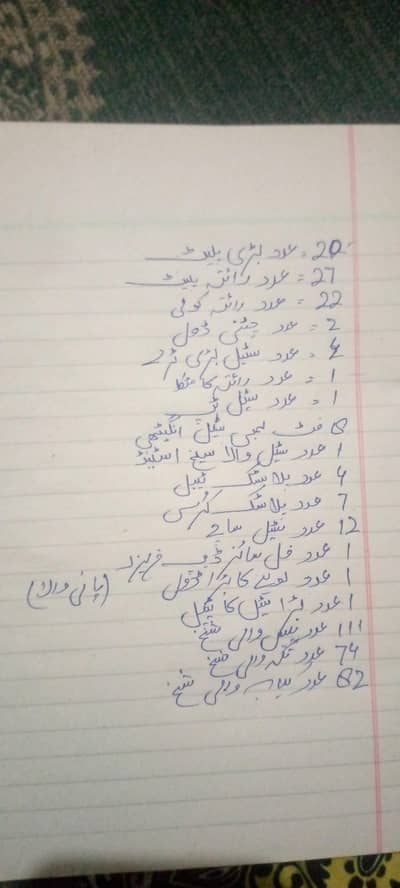 20 = عدد بڑی پلیٹ
27 = عدد رائتہ پلیٹ
22 = عدد رائتہ کولی
2 = عدد چٹنی ڈھول
4 = عدد سٹیل بڑی ٹرے
1 = عدد رائتہ کا مٹکا
1 = عدد سٹیل
8 فٹ لمبی سٹیل انگیٹھی
1 عدد سٹیل والا سیخ اسٹینڈ
4 عدد پلاسٹک ٹیبل
7 عدد پلاسٹک کرسی
12 عدد سٹیل
1 عدد فل سائز ڈیپ فریزر
1 عدد لوہے کا بڑا ڈھول (پانی والا)
1 عدد بڑا سٹیل کا ٹیبل
111 عدد والی سیخ
74 عدد تکہ والی سیخ
82 عدد کباب والی سیخ